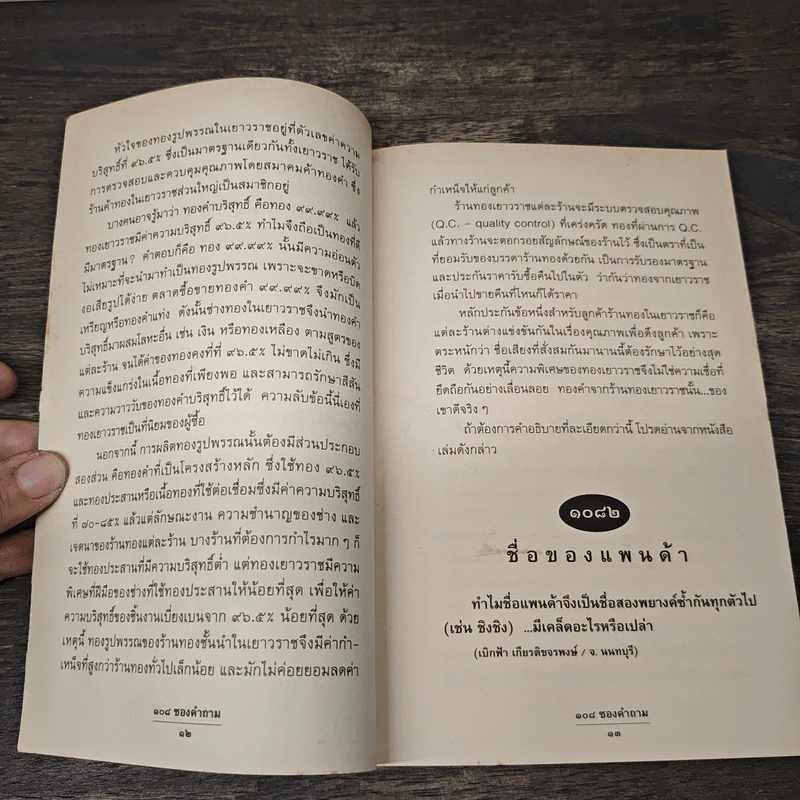 หัวใจของทองรูปพรรณในเยาวราชอยู่ที่ตัวเลขค่าความ
บริสุทธิ์ที่ ๙๖.๕% ซึ่งเป็นมาตรฐานเดียวกันทั้งเยาวราช ได้รับ
การตรวจสอบและควบคุมคุณภาพโดยสมาคมค้าทองคำ ซึ่ง
ร้านค้าทองในเยาวราชส่วนใหญ่เป็นสมาชิกอยู่
บางคนอาจรู้มาว่า ทองคำบริสุทธิ์ คือทอง ๙๙.๙๙% แล้ว
ทองเยาวราชมีค่าความบริสุทธิ์ ๙๖.๕% ทำไมจึงถือเป็นทองที่ดี
มีมาตรฐาน? คำตอบก็คือ ทอง ๙๙.๙๙% นั้นมีความอ่อนตัว
ไม่เหมาะที่จะนำมาทำเป็นทองรูปพรรณ เพราะจะขาดหรือบิด
งอเสียรูปได้ง่าย ตลาดซื้อขายทองคำ ๙๙.๙๙% จึงมักเป็น
เหรียญหรือทองคำแท่ง ดังนั้นช่างทองในเยาวราชจึงนำทองคำ
บริสุทธิ์มาผสมโลหะอื่น เช่น เงิน หรือทองเหลือง ตามสูตรของ
แต่ละร้าน จนได้ค่าของทองคงที่ที่ ๙๖.๕% ไม่ขาดไม่เกิน ซึ่งมี
ความแข็งแกร่งในเนื้อทองที่เพียงพอ และสามารถรักษาสีสัน
และความวาววับของทองคำบริสุทธิ์ไว้ได้ ความลับข้อนี้นี่เองที่
ทองเยาวราชเป็นที่นิยมของผู้ซื้อ
นอกจากนี้ การผลิตทองรูปพรรณนั้นต้องมีส่วนประกอบ
สองส่วน คือทองคำที่เป็นโครงสร้างหลัก ซึ่งใช้ทอง ๙๖.๕%
และทองประสานหรือเนื้อทองที่ใช้ต่อเชื่อมซึ่งมีค่าความบริสุทธิ์
ที่ ๗๐-๘๕% แล้วแต่ลักษณะงาน ความชำนาญของช่าง และ
เจตนาของร้านทองแต่ละร้าน บางร้านที่ต้องการกำไรมาก ๆ ก็
จะใช้ทองประสานที่มีความบริสุทธิ์ต่ำ แต่ทองเยาวราชมีความ
พิเศษที่ฝีมือของช่างที่ใช้ทองประสานให้น้อยที่สุด เพื่อให้ค่า
ความบริสุทธิ์ของชิ้นงานเบี่ยงเบนจาก ๙๖.๕% น้อยที่สุด ด้วย
เหตุนี้ ทองรูปพรรณของร้านทองชั้นนำในเยาวราชจึงมีค่ากำ-
เหน็จที่สูงกว่าร้านทองทั่วไปเล็กน้อย และมักไม่ค่อยยอมลดค่า
๑๐๘ ซองคำถาม
๑๒
กำเหน็จให้แก่ลูกค้า
ร้านทองเยาวราชแต่ละร้านจะมีระบบตรวจสอบคุณภาพ
(Q.C. – quality control) ที่เคร่งครัด ทองที่ผ่านการ Q.C.
แล้วทางร้านจะตอกรอยสัญลักษณ์ของร้านไว้ ซึ่งเป็นตราที่เป็น
ที่ยอมรับของบรรดาร้านทองด้วยกัน เป็นการรับรองมาตรฐาน
และประกันราคารับซื้อคืนไปในตัว ว่ากันว่าทองจากเยาวราช
เมื่อนำไปขายคืนที่ไหนก็ได้ราคา
หลักประกันข้อหนึ่งสำหรับลูกค้าร้านทองในเยาวราชก็คือ
แต่ละร้านต่างแข่งขันกันในเรื่องคุณภาพเพื่อดึงลูกค้า เพราะ
ตระหนักว่า ชื่อเสียงที่สั่งสมกันมานานนี้ต้องรักษาไว้อย่างสุด
ชีวิต ด้วยเหตุนี้ความพิเศษของทองเยาวราชจึงไม่ใช่ความเชื่อที่
ยึดถือกันอย่างเลื่อนลอย ทองคำจากร้านทองเยาวราชนั้น...ของ
เขาดีจริง ๆ
ถ้าต้องการคำอธิบายที่ละเอียดกว่านี้ โปรดอ่านจากหนังสือ
เล่มดังกล่าว
๑๐๘๒
ชื่อของแพนด้า
ทำไมชื่อแพนด้าจึงเป็นชื่อสองพยางค์ซ้ำกันทุกตัวไป
(เช่น ชิงชิง) ...มีเคล็ดอะไรหรือเปล่า
(เบิกฟ้า เกียรติขจรพงษ์ / จ. นนทบุรี)
๑๐๘ ซองคำถาม
๑๓